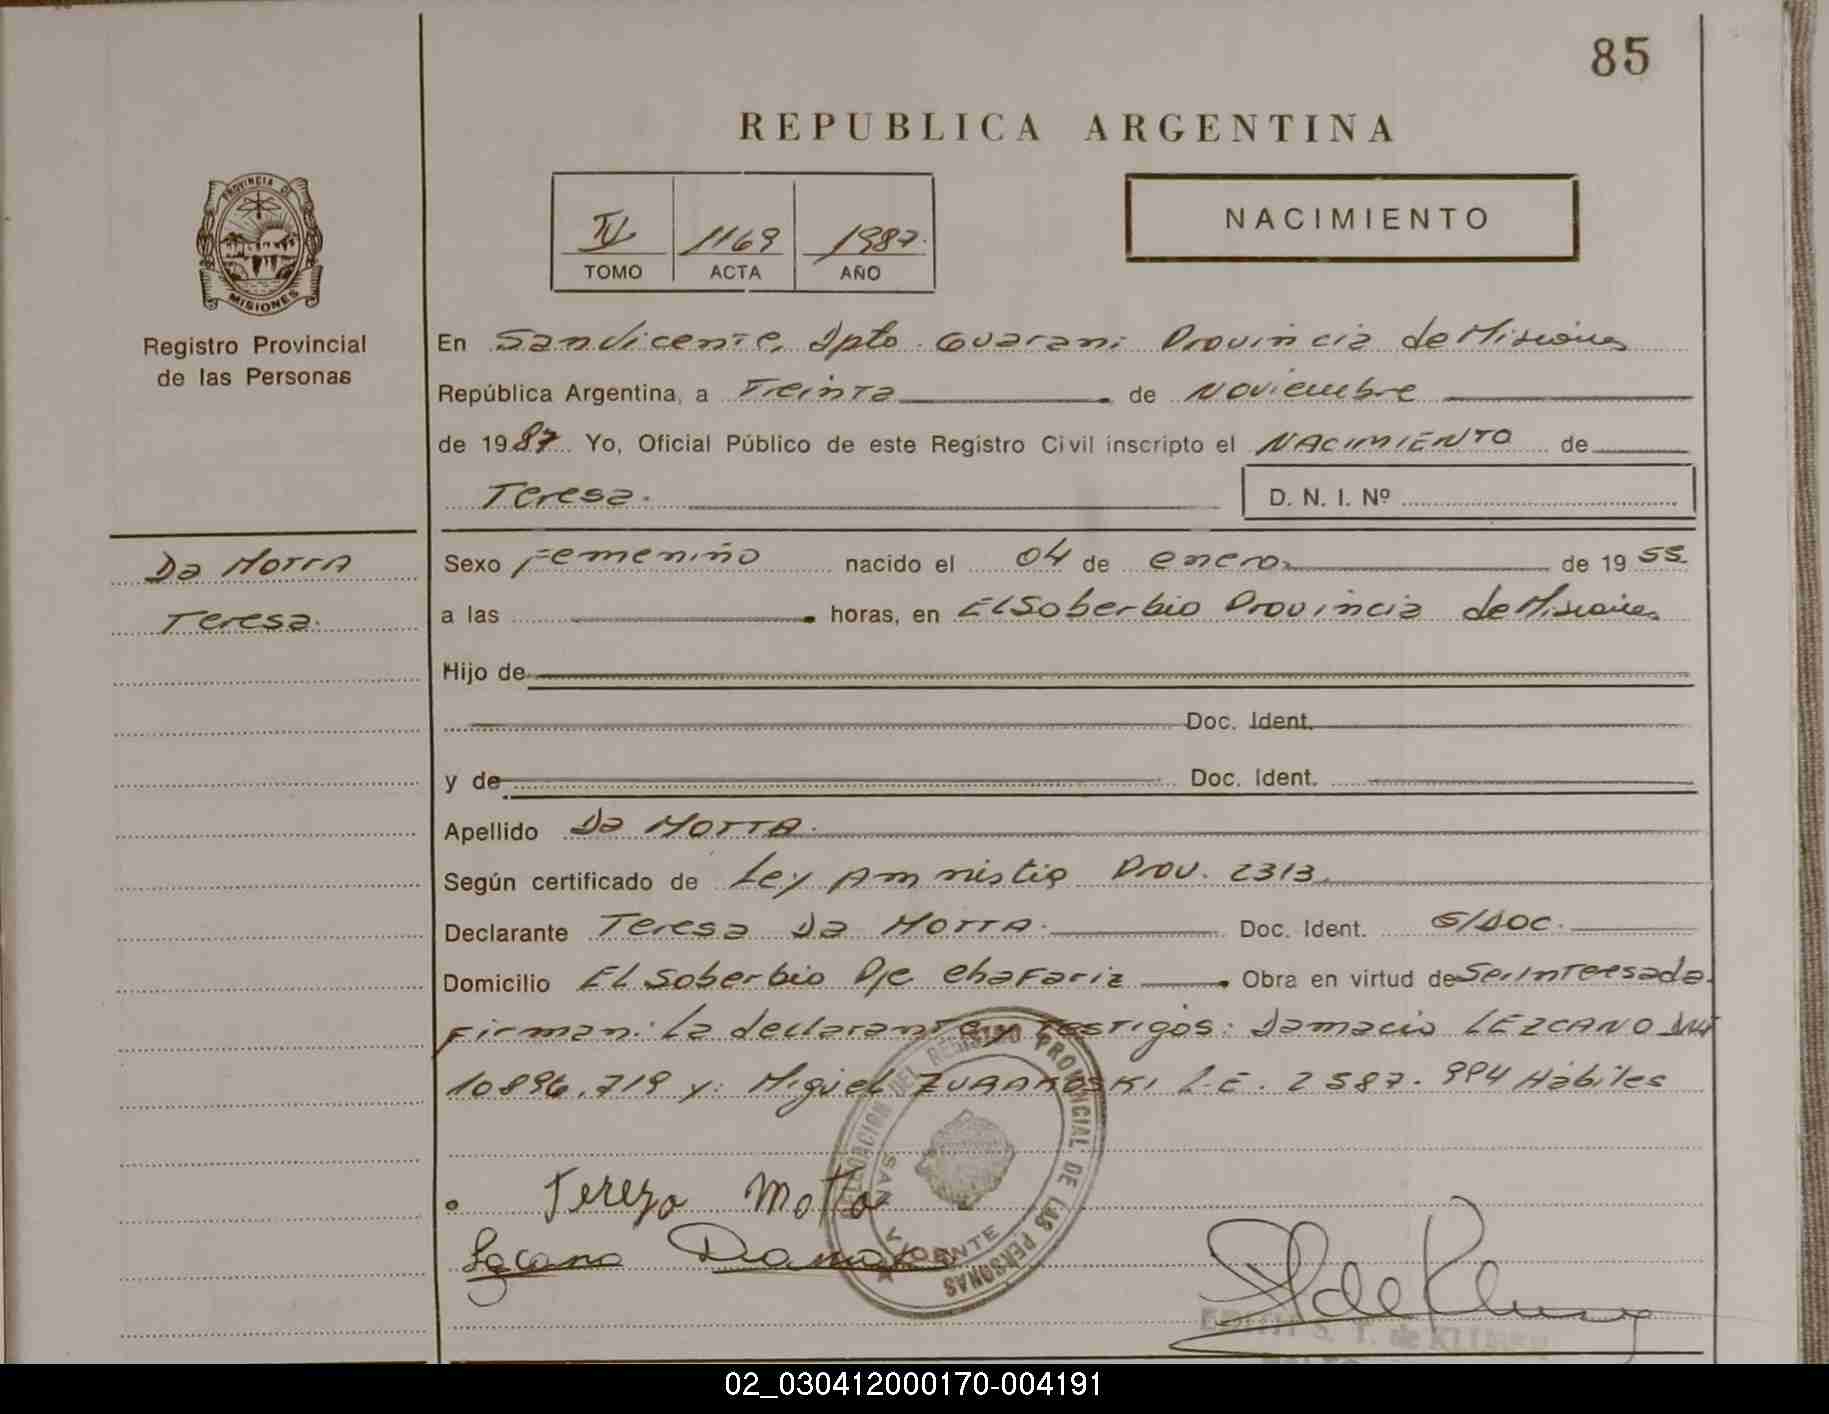 85
REPUBLICA ARGENTINA
IV 1169 1987.
TOMO ACTA AÑO
NACIMIENTO
PROVINCIA DE
MISIONES
Registro Provincial
de las Personas
En San Vicente, Dpto Guarani Provincia de Misiones
República Argentina, a Treinta de Noviembre
de 1987 Yo, Oficial Público de este Registro Civil inscripto el NACIMIENTO de
Teresa.
D. N. I. Nº
Da MOTTA
Teresa.
Sexo Femenino nacido el 04 de enero de 1955
a las horas, en El Soberbio Provincia de Misiones
Hijo de
Doc. Ident.
y de Doc. Ident.
Apellido Da MOTTA.
Según certificado de Ley Amnistia Prov. 2313.
Declarante Teresa Da MOTTA. Doc. Ident. S/DOC.
Domicilio El Soberbio Pje Chafariz Obra en virtud de Ser Interesada.
Firman: La declarante y Testigos: Damacio LEZCANO DNI
10896.719 y: Miguel L.E. 2587.994 Hábiles
DELEGACION DEL REGISTRO PROVINCIAL DE LAS PERSONAS
SAN VICENTE
Tereza Motta
Lezcano Damacio
EDITH S. T. de KLIMEN
02_030412000170-004191